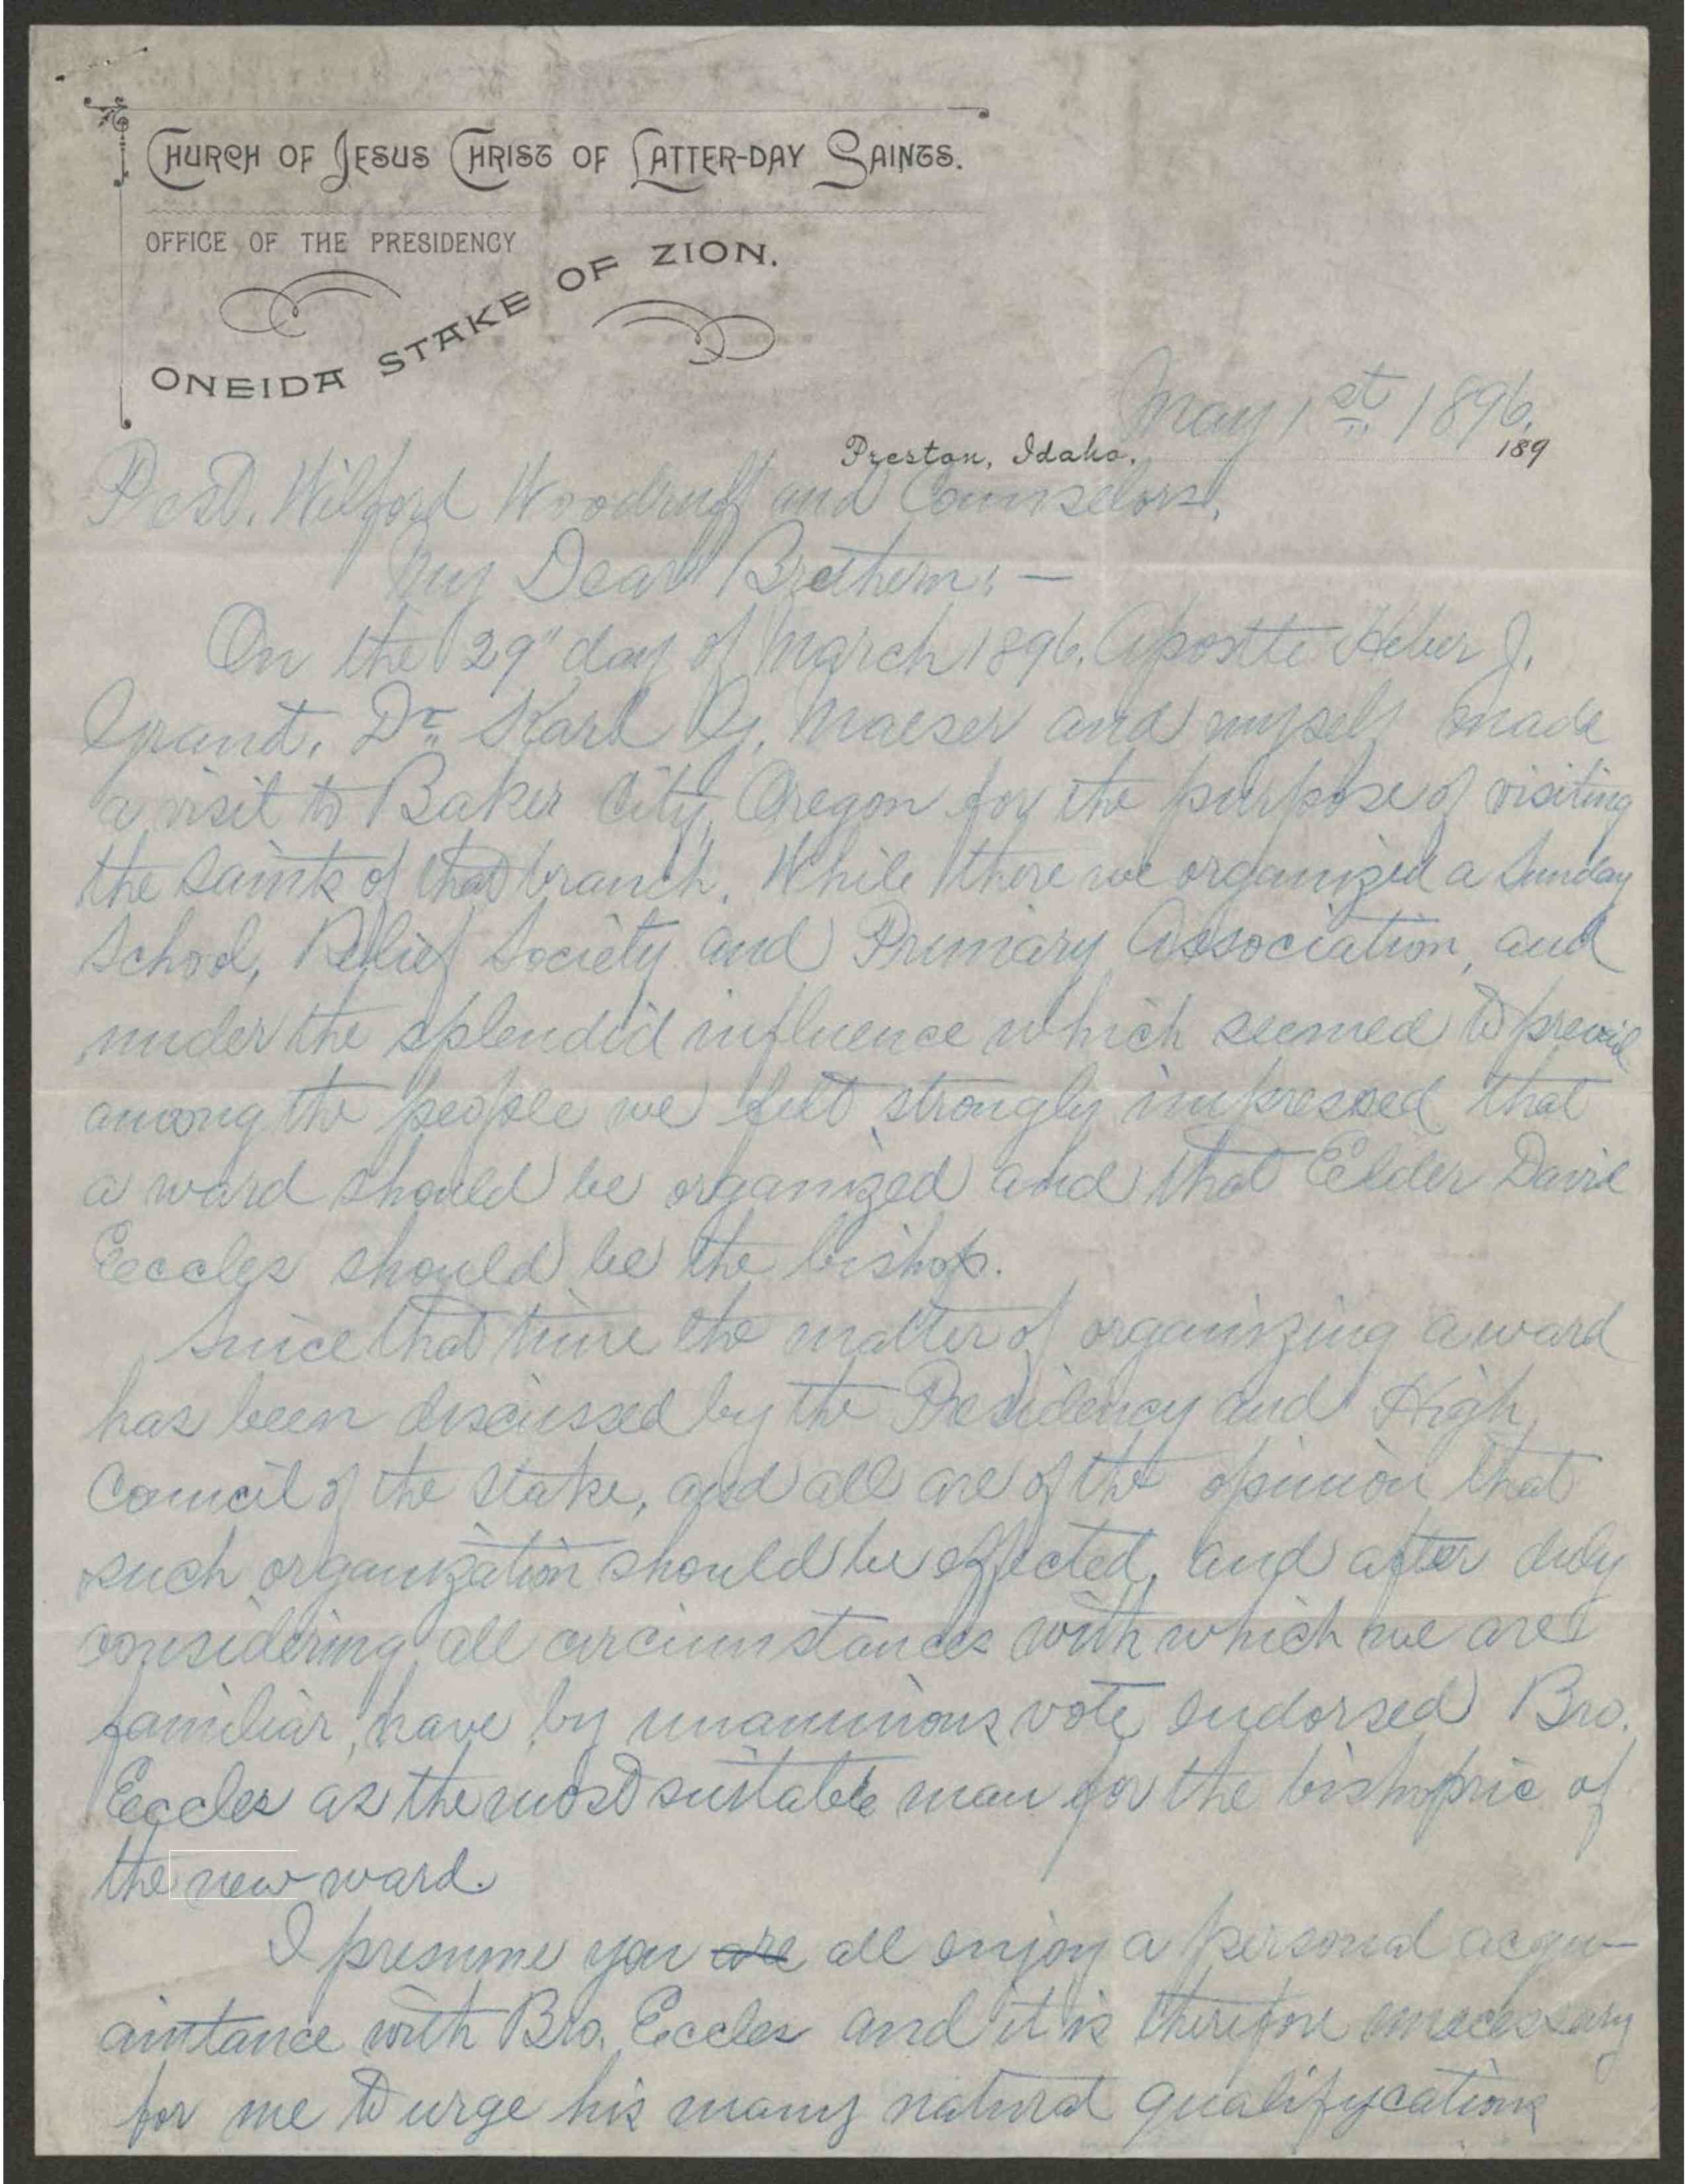 CHURCH OF JESUS CHRIST OF LATTER-DAY SAINTS.
OFFICE OF THE PRESIDENCY
ONEIDA STAKE OF ZION.
May 1st 1896.
Preston, Idaho, 189
Prest. Wilford Woodruff and Counselors,
My Dear Brethern: —
On the 29" day of March 1896. Apostle Heber J.
Grant, Dr. Karl G. Maeser and myself made
a visit to Baker City, Oregon for the purpose of visiting
the Saints of that branch. While there we organized a Sunday
School, Relief Society and Primary Association, and
under the splendid influence which seemed to prevail
among the people we felt strongly impressed that
a ward should be organized and that Elder David
Eccles should be the bishop.
Since that time the matter of organizing a ward
has been discussed by the Presidency and High
Council of the Stake, and all are of the opinion that
such organization should be effected, and after duly
considering all circumstances with which we are
familiar, have by unanimous vote endorsed Bro.
Eccles as the most suitable man for the bishopric of
the new ward.
I presume you are all enjoy a personal acqu-
aintance with Bro. Eccles and it is therefore unnecessary
for me to urge his many natural qualifycations